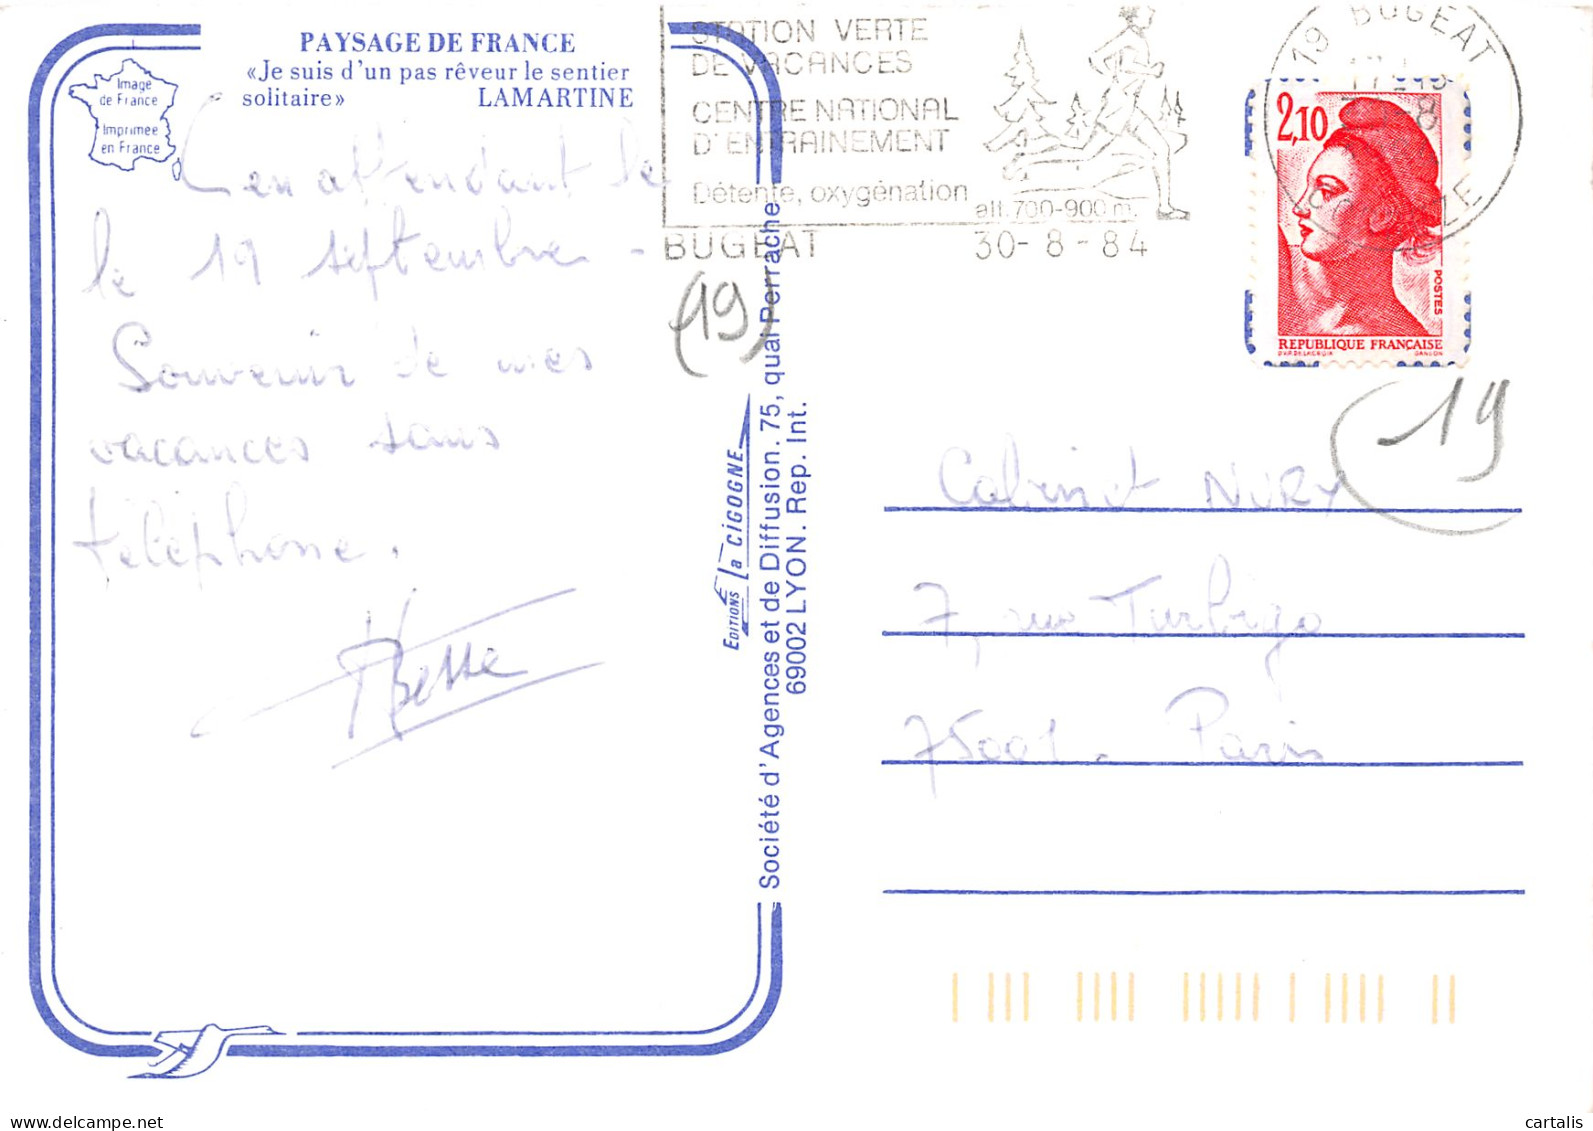 PAYSAGE DE FRANCE
«Je suis d'un pas rêveur le sentier
solitaire» LAMARTINE
Image
de France
Imprimée
en France
en attendant le
le 19 septembre -
Souvenir de mes
vacances sans
téléphone.
Besse
STATION VERTE
DE VACANCES
CENTRE NATIONAL
D'ENTRAINEMENT
Détente, oxygénation
alt. 700-900 m.
BUGEAT 30-8-84
(19)
19 BUGEAT
CORREZE
2,10
POSTES
REPUBLIQUE FRANÇAISE
D'AP. DELACROIX GANDON
19
EDITIONS la CIGOGNE
Société d'Agences et de Diffusion. 75, quai Perrache
69002 LYON. Rep. Int.
Cabinet NURY
7, rue Turbigo
75001. Paris
www.delcampe.net
cartalis